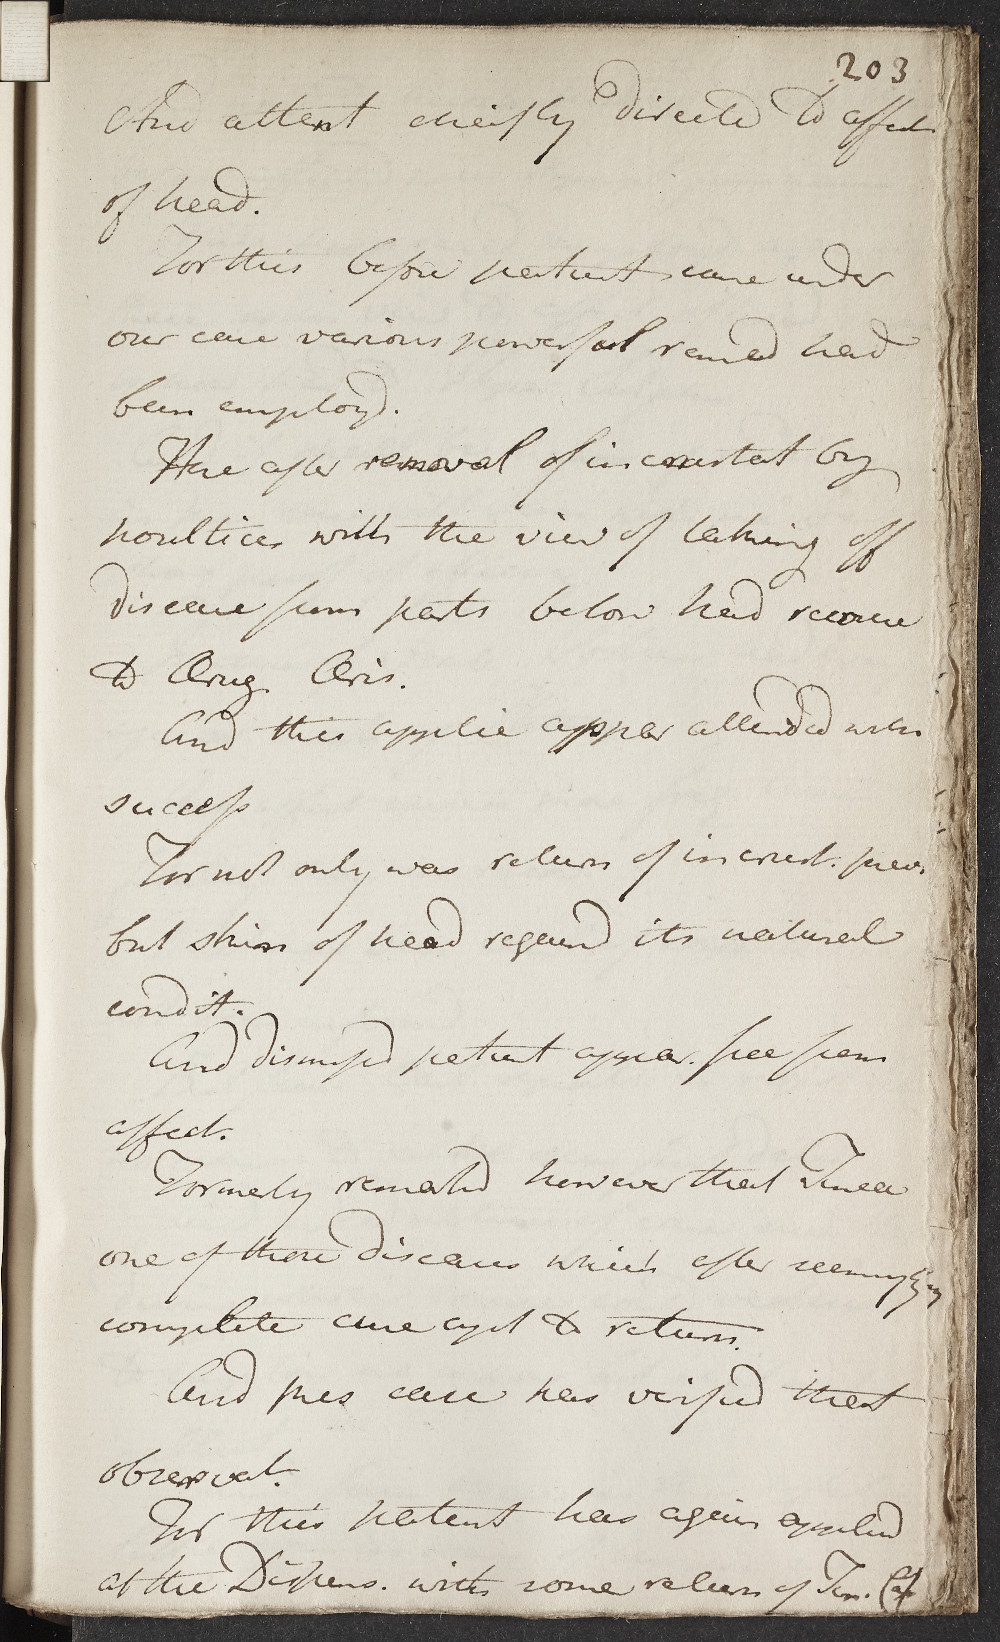 203
And attent cheifly directed to affect
of head.
For this before patient came under
our care various powerful remed had
been employd.
Here after removal of incrustat by
poultices with the view of taking off
disease from parts below had recourse
to Ærug Æris.
And this applic appear attended with
success
For not only was return of incrust. prev.
but skin of head regaind its natural
condit.
And dismissd patient appear. free from
affect.
Formerly remarkd however that Tinea
one of those diseases which after seemingly
complete cure apt to return.
And pres case has verified that
observat.
For this patient has again applied
at the Dispens. with some return of Tin.